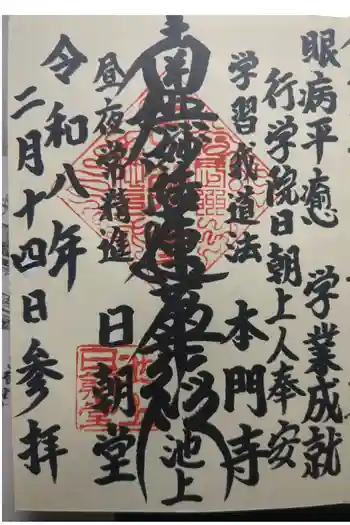 眼病平癒 学業成就
行学院日朝上人奉安
学習我道法 本門寺
南無妙法蓮華経 池上
昼夜常精進 日朝堂
令和八年
二月十四日参拝